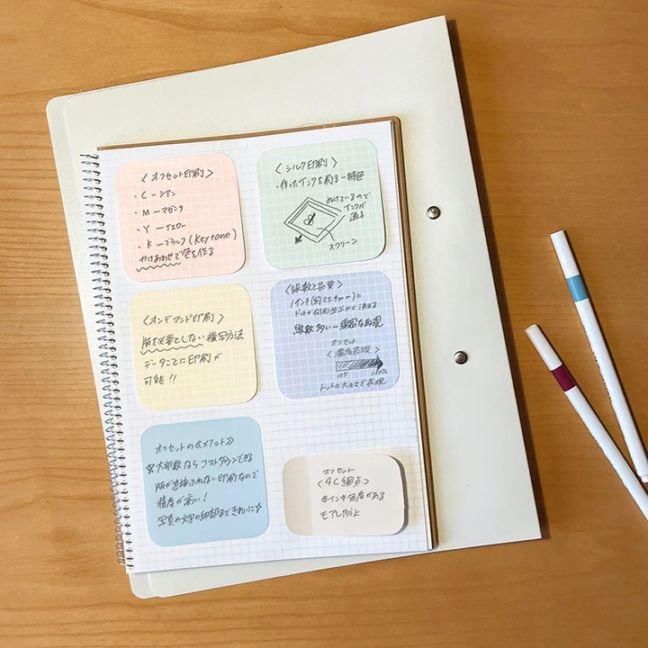 〈オフセット印刷〉
・C ー シアン
・M ー マゼンタ
・Y ー イエロー
・K ー ブラック(Keytone)
かけあわせで色を作る
〈シルク印刷〉
・作ったインクを刷る ー 特色
ぬけているので
インクが
通る
スクリーン
〈オンデマンド印刷〉
版を必要としない複写方法
データごとに印刷が
可能!!
〈線数と品質〉
1インチ(約25.4mm)に
ドットが何列並ぶかで決まる
線数多い ー 綿密な表現
オフセット
〈濃度表現〉
100%
ドットの大きさで表現
オフセットの《メリット》
大部数ならコストダウンできる
版が直接ふれない印刷なので
精度が高い!
写真や文字の細部まできれいに
オフセット
〈4C網点〉
各インキ角度がある
モアレ防止